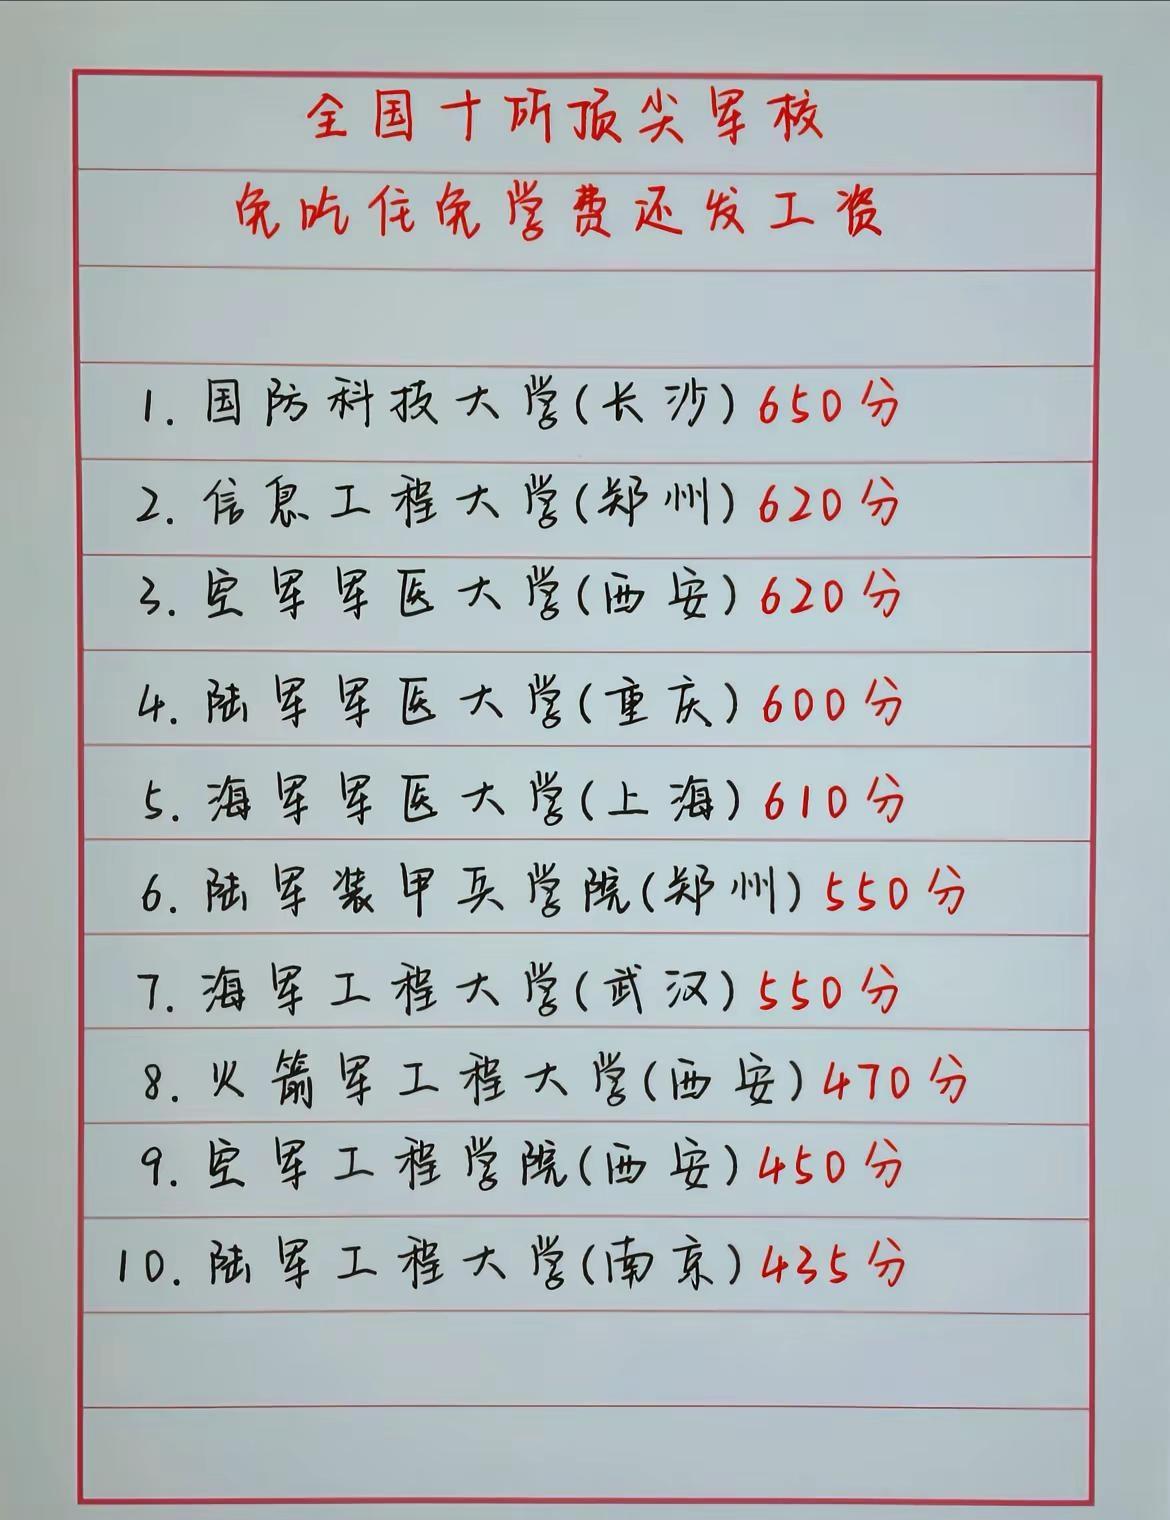 全国十所顶尖军校
免吃住免学费还发工资
1. 国防科技大学(长沙) 650分
2. 信息工程大学(郑州) 620分
3. 空军军医大学(西安) 620分
4. 陆军军医大学(重庆) 600分
5. 海军军医大学(上海) 610分
6. 陆军装甲兵学院(郑州) 550分
7. 海军工程大学(武汉) 550分
8. 火箭军工程大学(西安) 470分
9. 空军工程学院(西安) 450分
10. 陆军工程大学(南京) 435分